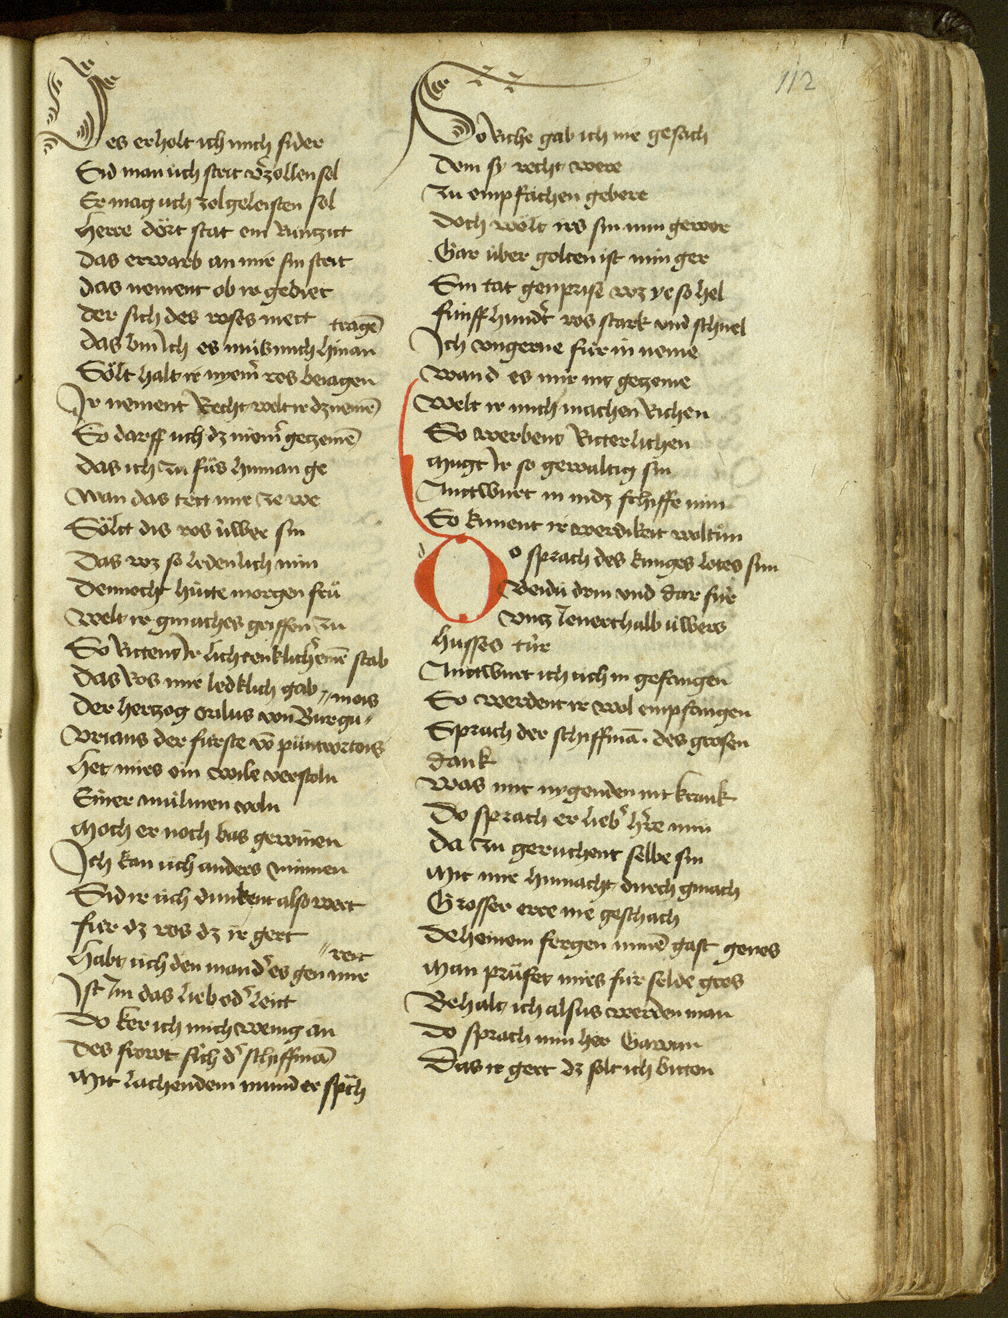 112
Des erholt ich mich sider
Sid man üch strit v̾zollen sol
Er mag üch zol geleisten sol
Herre dört stat ein Runzitt
das erwarb an mir sin strit
das nement ob ir gebiet
der sich des roses niett
tragē
das bin Ich es můs mich hinan
Sölt halt ir nyem̄ ros beiagen
Ir nement Recht welt ir dz nemē
So darff üch dz niem̄ gezemē
das ich zů fůs hinnan ge
Wan das tett mir ze we
Söltt dis ros üwer sin
Das wz so ledenlich min
Dennocht hütte morgen frů
Welt ir gmaches griffen zů
So Rittent Ir lichtenklich̾ einē stab
das Ros mir ledklich gab
Der hertzog orilus von Burgu〃〃nois
Vrians der fürste vō püntwrtois
Het mirs ein wile verstoln
Einer mülinen voln
Moch er noch bas gewinen
Ich kan üch anders minnen
Sid ir üch dunkent also wert
für dz ros dz ir gert
Habt üch den man d̾ es gen mir 〃reit
Ist Im das lieb od̾ leit
Do ker ich mich wenig an
Des frowt sich d̾ schiffmā
Mit lachendem mund er sp̄ch
So Riche gab ich nie gesach
Dem sy recht were
Zu empfachen gebere
Doch wölt irs sin min gewer
Gar über golten ist min ger
Sin tat genprise wz ye so hel
fünff hundert ros stark vnd schnel
Ich vngerne für in neme
Wand es mir nit gezeme
Welt ir mich machen Richen
So werbent Ritterlichen
Mugt Ir so gewaltig sin
Antwurt in in dz schiffe min
So kunent ir werdikeit wol tůn
d
Do sprach des kunges lotes sun
Beidü drin vnd dar für
vntz Jenerthalb üwers
husses tür
Antwurt ich üch in gefangen
So werdent ir wol empfangen
Sprach der schiffmā des grosen
dank
Was mit nygenden nit krank
Do sprach er lieb̾ h̾re min
da zů geruchent selbe sin
Mit mir hinnacht durch gmach
Grosser erre nie geschach
Deheinem fergen minē gast genos
Man prüfet mirs für selde gros
Behalt ich alsus werden man
Do sprach min her Gawan
Das ir gert dz solt ich bitten